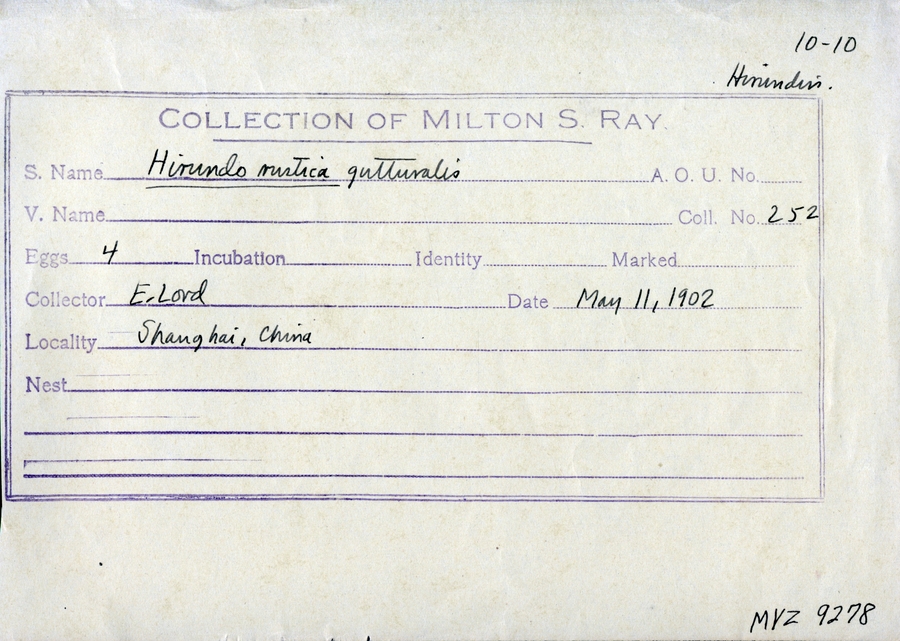 10-10
Hirundin.
COLLECTION OF MILTON S. RAY.
S. Name Hirundo rustica gutturalis A. O. U. No.
V. Name Coll. No. 252
Eggs 4 Incubation Identity Marked
Collector E. Lord Date May 11, 1902
Locality Shanghai, China
Nest
MVZ 9278